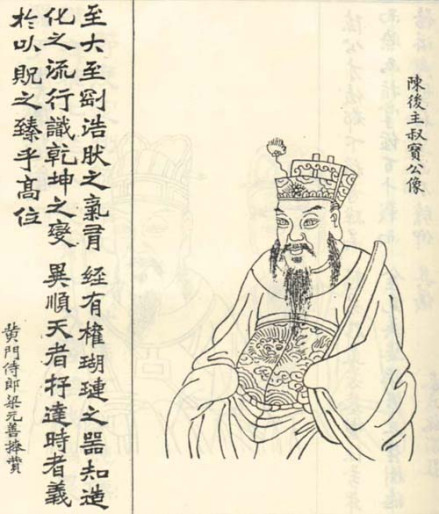 陳後主叔寶公像
至大至剛浩肰之氣有經有權瑚璉之器知造
化之流行識乾坤之變異順天者抒達時者義
於以貺之臻乎高位
黄門侍郎梁元善捧贊